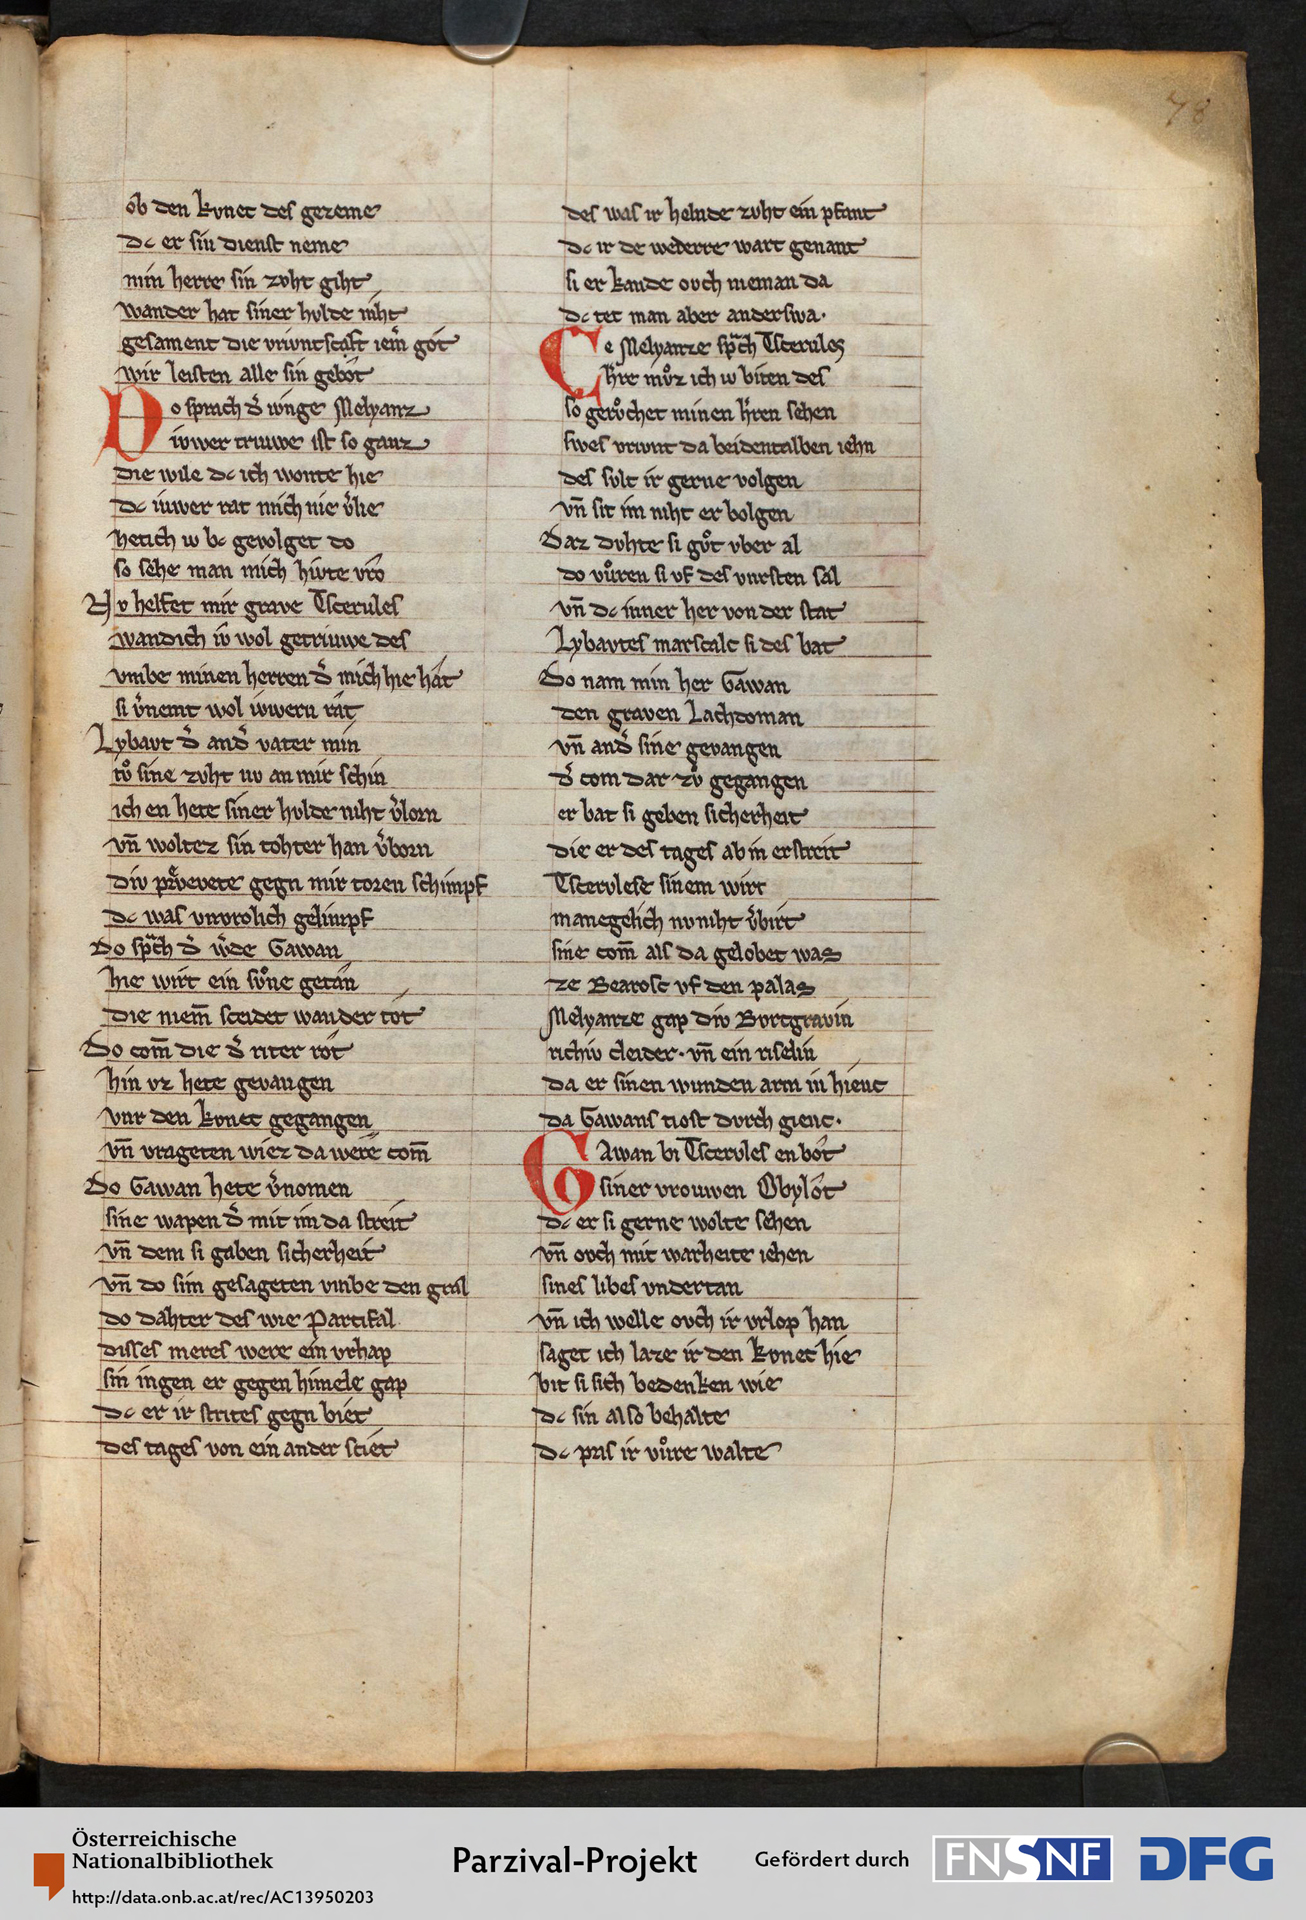 78
ob den kvnec des gezeme
dc er sin dienst neme
min herre sin zvht giht
wander hat siner hvlde niht
gesament die vrivntscaft iem̄ got
wir leisten alle sin gebot
Do sprach d̓ ivnge Melyanz
iwer triuwe ist so ganz
die wile dc ich wonte hie
dc iuwer rat mich nie v̓lie
hetich iv bc gevolget do
so sehe man mich hivte vro
Nv helfet mir grave Tscerules
wandich iv wol getriuwe des
vmbe minen herren d̓ mich hie hat
si v̓nemt wol iwern rat
Lybavt d̓ and̓ vater min
tvͦ sine zvht nv an mir schin
ich en hete siner hvlde niht v̓lorn
vn̄ woltez sin tohter han v̓born
div prvͤvete gegn mir toren schimpf
dc was vnvrolich gelimpf
Do spͣch d̓ w̓de Gawan
hie wirt ein svͦne getan
die niem̄ sceidet wander tot
Do com̄ die d̓ riter rot
hin vz hete gevangen
vur den kvnec gegangen
vn̄ vrageten wiez da were com̄
Do Gawan hete v̓nomen
sine wapen d̓ mit im da streit
vn̄ dem si gaben sicherheit
vn̄ do sim gesageten vmbe den gral
do dahter des wie Partifal
disses meres were ein vrhap
sin ingen er gegen himele gap
dc er ir strites gegn biet
des tages von ein ander sciet
des was ir helnde zvht ein pfant
dc ir de wederre wart genant
si er kande ovch nieman da
dc tet man aber anderswa.
Ce Melyanze spͣch Tscerules
h̓re mvͦz ich iv biten des
so gervͦchet minen h̓ren sehen
swes vrivnt da beidentalben iehn
des svlt ir gerne volgen
vn̄ sit im niht er bolgen
Daz dvhte si gvͦt vber al
do vuͦren si vf des vursten sal
vn̄ dc inner her von der stat
Lybavtes marscalc si des bat
Do nam min her Gawan
den graven Lachdoman
vn̄ and̓ sine gevangen
d̓ com dar zvͦ gegangen
er bat si geben sicherheit
die er des tages ab in erstreit
Tscervlese sinem wirt
manegelich nv niht v̓birt
sine com̄ als da gelobet was
ze Bearosc vf den palas
Melyanze gap div Bvrcgravin
richiv cleider. vn̄ ein riselin
da er sinen wunden arm in hienc
da Gawans tiost dvrch gienc.
Gawan bi Tscervles enbot
siner vrouwen Obylot
dc er si gerne wolte sehen
vn̄ ovch mit warheite iehen
sines libes vndertan
vn̄ ich welle ovch ir vrlop han
saget ich laze ir den kvnec hie
bit si sich bedenken wie
dc sin also behalte
dc pris ir vuͦre walte
Österreichische
Nationalbibliothek
http://data.onb.ac.at/rec/AC13950203
Parzival-Projekt
Gefördert durch
FNSNF
DFG